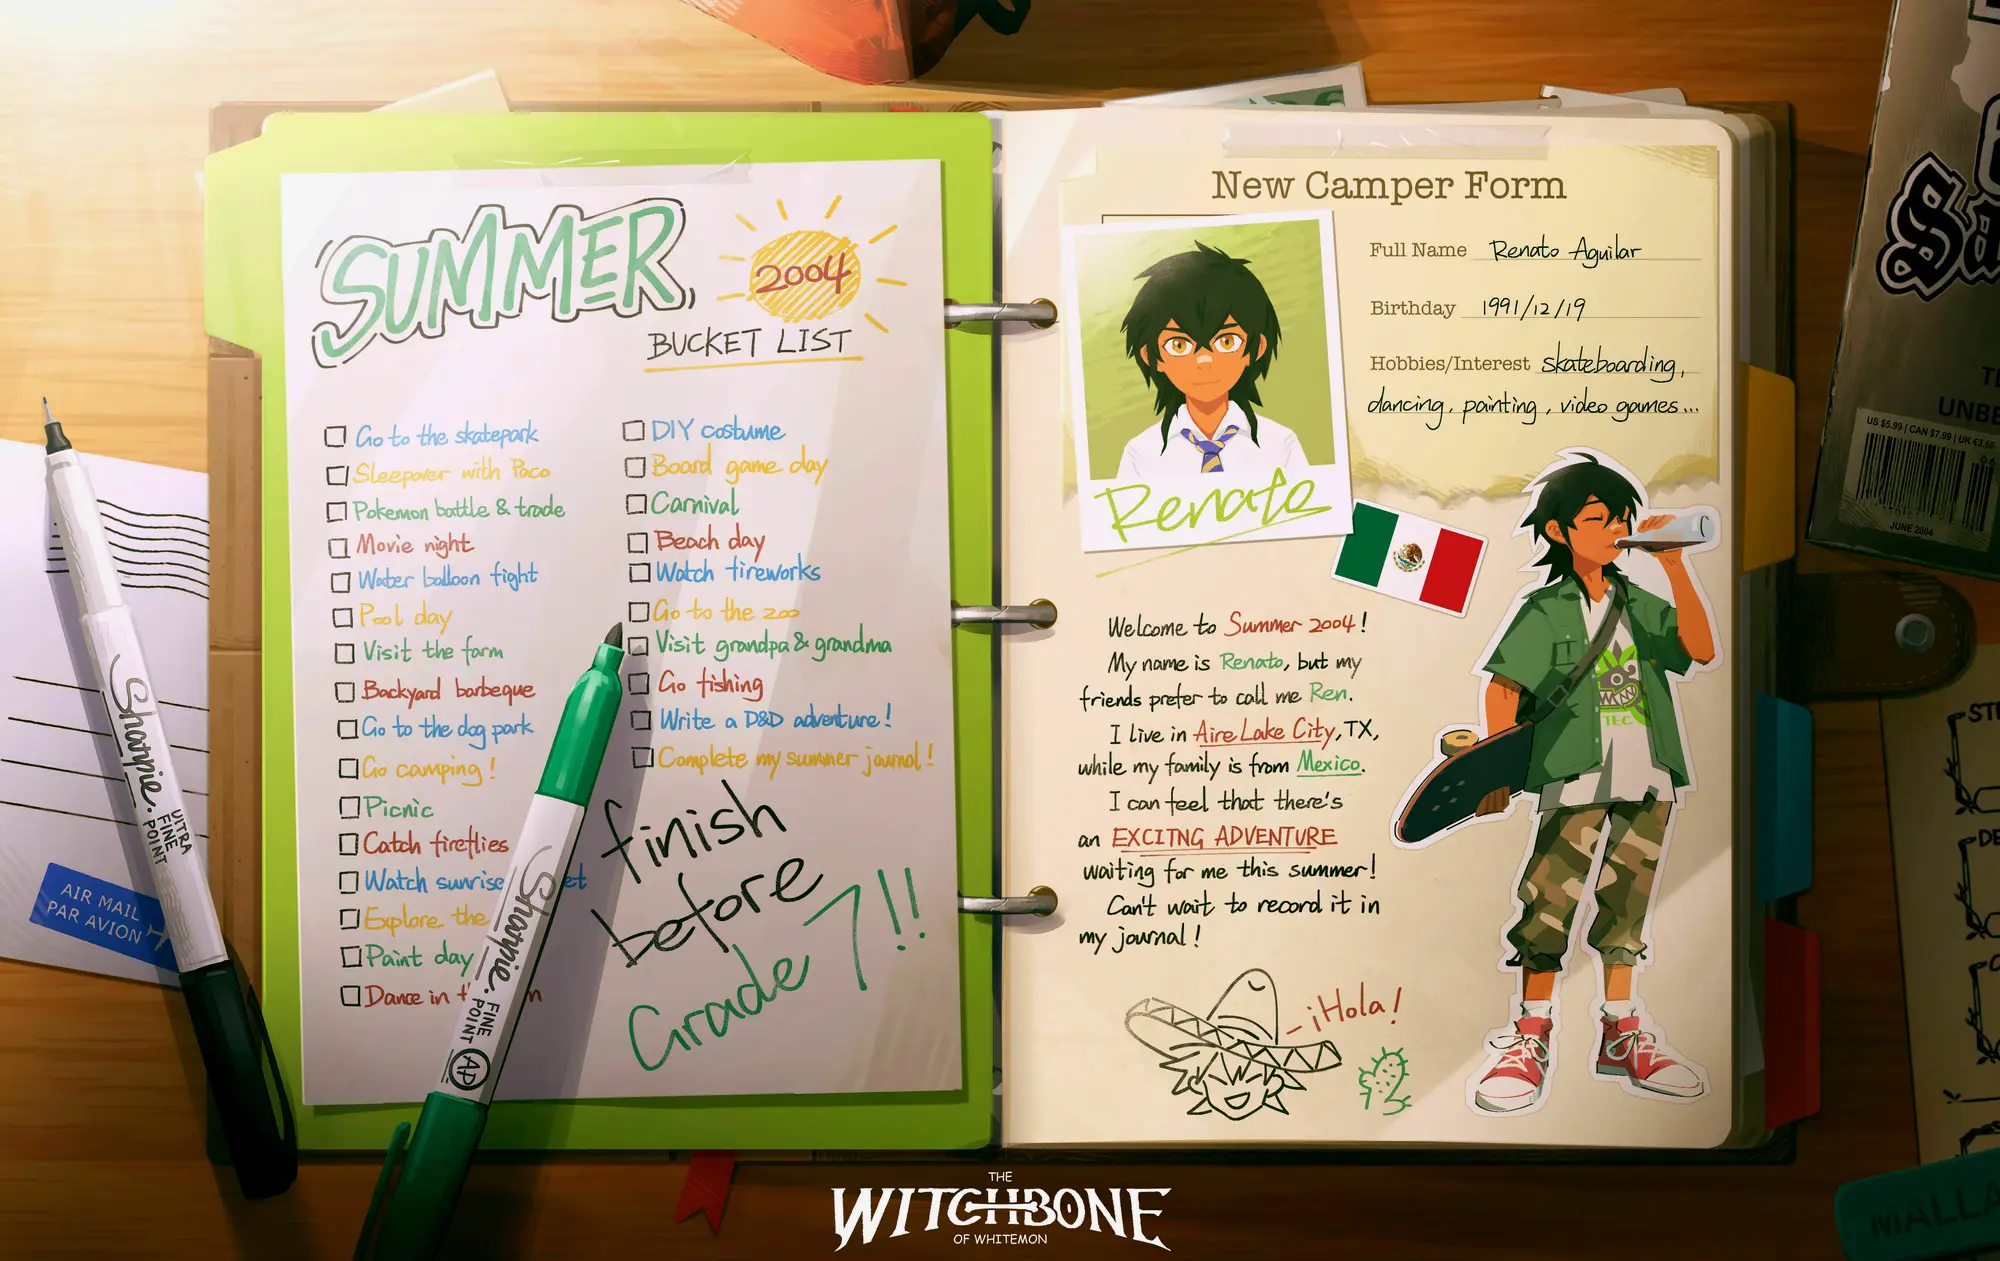 SUMMER,
2004
BUCKET LIST
Go to the skatepark
Sleepover with Paco
Pokemon battle & trade
Movie night
Water balloon fight
Pool day
Visit the farm
Backyard barbeque
Go to the dog park
Go camping!
Picnic
Catch fireflies
Watch sunrise
Explore the
Paint day
Dance in
DIY costume
Board game day
Carnival
Beach day
Watch fireworks
Go to the zoo
Visit grandpa & grandma
Go fishing
Write a D&D adventure!
Complete my summer journal!
finish
before
Grade 7!!
Sharpie.
ULTRA
FINE
POINT
AIR MAIL
PAR AVION
Sharpie.
FINE
POINT
AP
New Camper Form
Full Name Renato Aguilar
Birthday 1991/12/19
Hobbies/Interest skateboarding,
dancing, painting, video games...
Renato
Welcome to Summer 2004!
My name is Renato, but my
friends prefer to call me Ren.
I live in Aire Lake City, TX,
while my family is from Mexico.
I can feel that there's
an EXCITNG ADVENTURE
waiting for me this summer!
Can't wait to record it in
my journal!
¡Hola!
TEC
US $5.99 | CAN $7.99 | UK €3.50
JUNE 2004
THE
WITCHBONE
OF WHITEMON